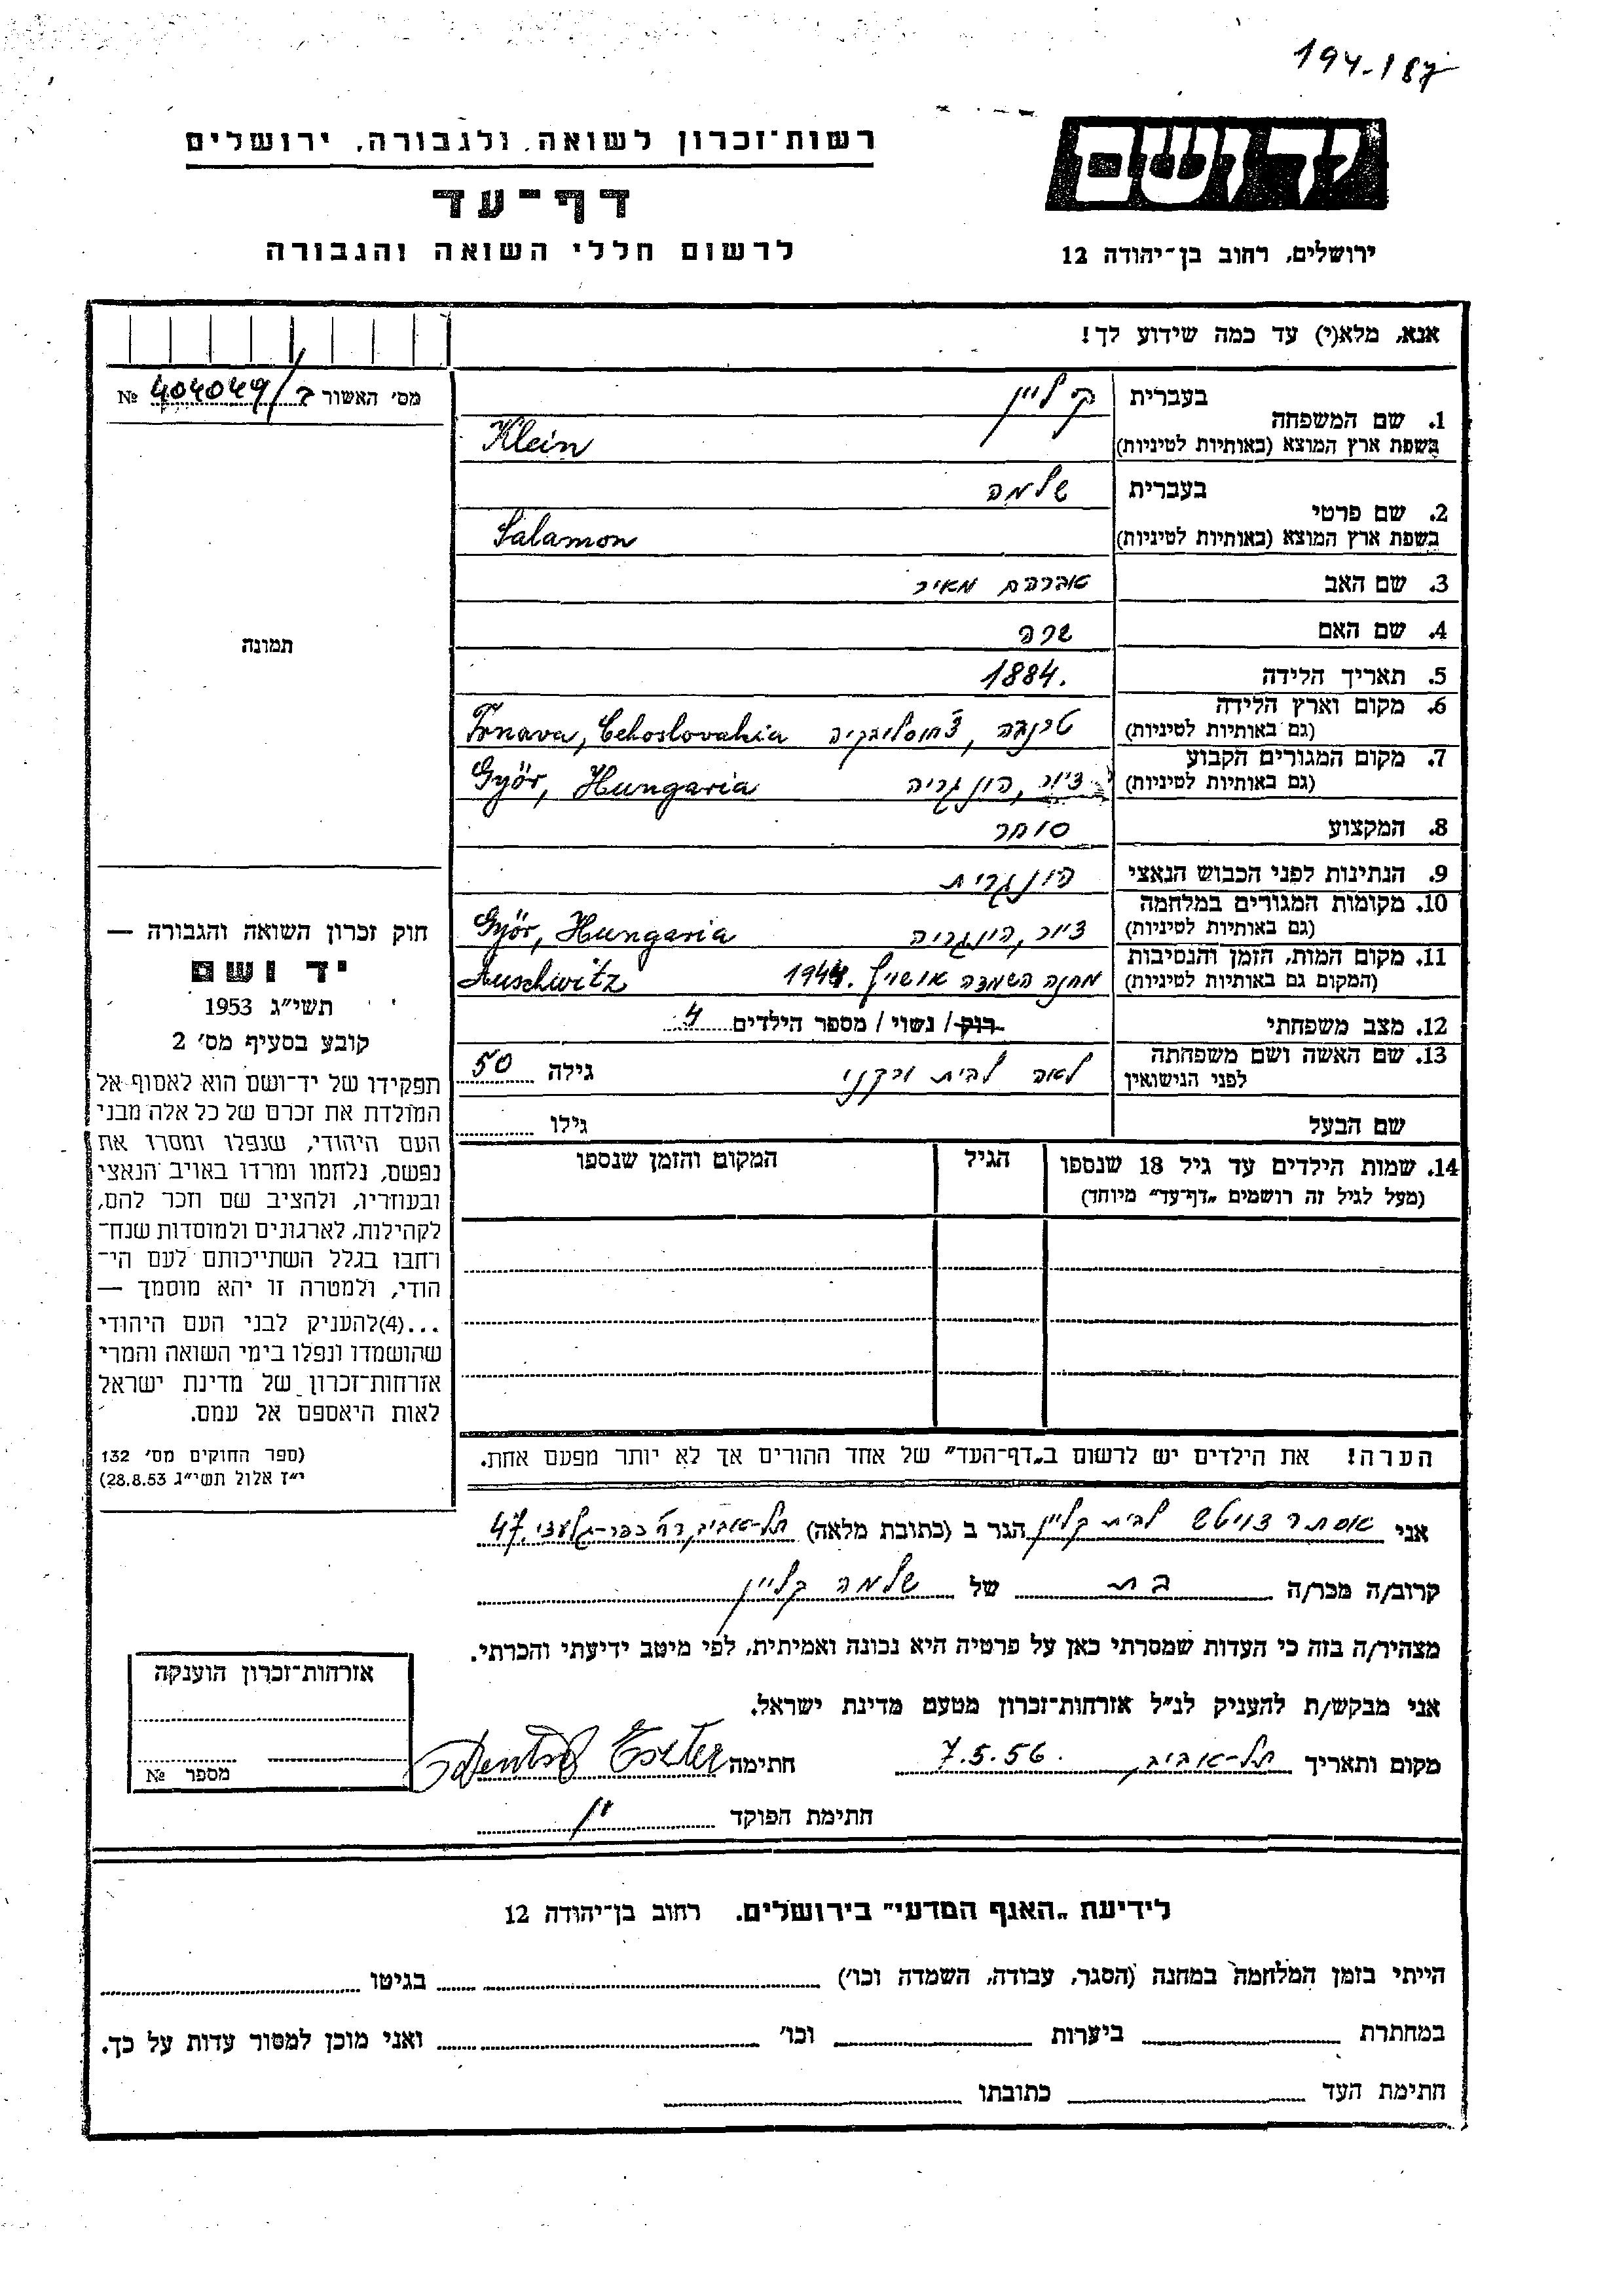 194-187
רשות־זכרון לשואה ולגבורה, ירושלים
דף־עד
לרשום חללי השואה והגבורה
יד ושם
ירושלים, רחוב בן־יהודה 12
אנא, מלא(י) עד כמה שידוע לך!
מס׳ האשור 404049/ № 
1. שם המשפחה
בעברית קליין
בשפת ארץ המוצא (באותיות לטיניות) Klein
2. שם פרטי
בעברית שלמה
בשפת ארץ המוצא (באותיות לטיניות) Salamon
3. שם האב אברהם מאיר
4. שם האם שרה
5. תאריך הלידה 1884.
6. מקום וארץ הלידה
(גם באותיות לטיניות) טרנבה, צ'כוסלובקיה Trnava, Cehoslovakia
7. מקום המגורים הקבוע
(גם באותיות לטיניות) דיור, הונגריה Györ, Hungaria
8. המקצוע סוחר
9. הנתינות לפני הכבוש הנאצי הונגרית
10. מקומות המגורים במלחמה
(גם באותיות לטיניות) דיור, הונגריה Györ, Hungaria
11. מקום המות, הזמן והנסיבות
(המקום גם באותיות לטיניות) מחנה השמדה אושויץ. 1944 Auschwitz
12. מצב משפחתי רוק / נשוי / מספר הילדים 4
13. שם האשה ושם משפחתה
לפני הנישואין לאה לבית גילה 50
שם הבעל גילו
14. שמות הילדים עד גיל 18 שנספו
(מעל לגיל זה רושמים „דף־עד״ מיוחד)
הגיל
המקום והזמן שנספו
הערה! את הילדים יש לרשום ב„דף־העד״ של אחד ההורים אך לא יותר מפעם אחת.
תמונה
חוק זכרון השואה והגבורה —
יד ושם
תשי״ג 1953
קובע בסעיף מס׳ 2
תפקידו של יד־ושם הוא לאסוף אל
המולדת את זכרם של כל אלה מבני
העם היהודי, שנפלו ומסרו את
נפשם, נלחמו ומרדו באויב הנאצי
ובעוזריו, ולהציב שם וזכר להם,
לקהילות, לארגונים ולמוסדות שנח־
רחבו בגלל השתייכותם לעם הי־
הודי, ולמטרה זו יהא מוסמך —
...(4)להעניק לבני העם היהודי
שהושמדו ונפלו בימי השואה והמרי
אזרחות־זכרון של מדינת ישראל
לאות היאספם אל עמם.
(ספר החוקים מס׳ 132
י״ז אלול תשי״ג 28.8.53)
אני אסתר לבית קליין הגר ב (כתובת מלאה) תל-אביב, רח' כפר-גלעדי 47
קרוב/ה מכר/ה בת של שלמה קליין
מצהיר/ה בזה כי העדות שמסרתי כאן על פרטיה היא נכונה ואמיתית, לפי מיטב ידיעתי והכרתי.
אני מבקש/ת להעניק לנ״ל אזרחות־זכרון מטעם מדינת ישראל.
מקום ותאריך תל-אביב, 7.5.56. חתימה Eszter
חתימת הפוקד
אזרחות־זכרון הוענקה
מספר №
לידיעת „האגף המדעי״ בירושלים. רחוב בן־יהודה 12
הייתי בזמן המלחמה במחנה (הסגר, עבודה, השמדה וכו׳) בגיטו
במחתרת ביערות וכו׳ ואני מוכן למסור עדות על כך.
חתימת העד כתובתו